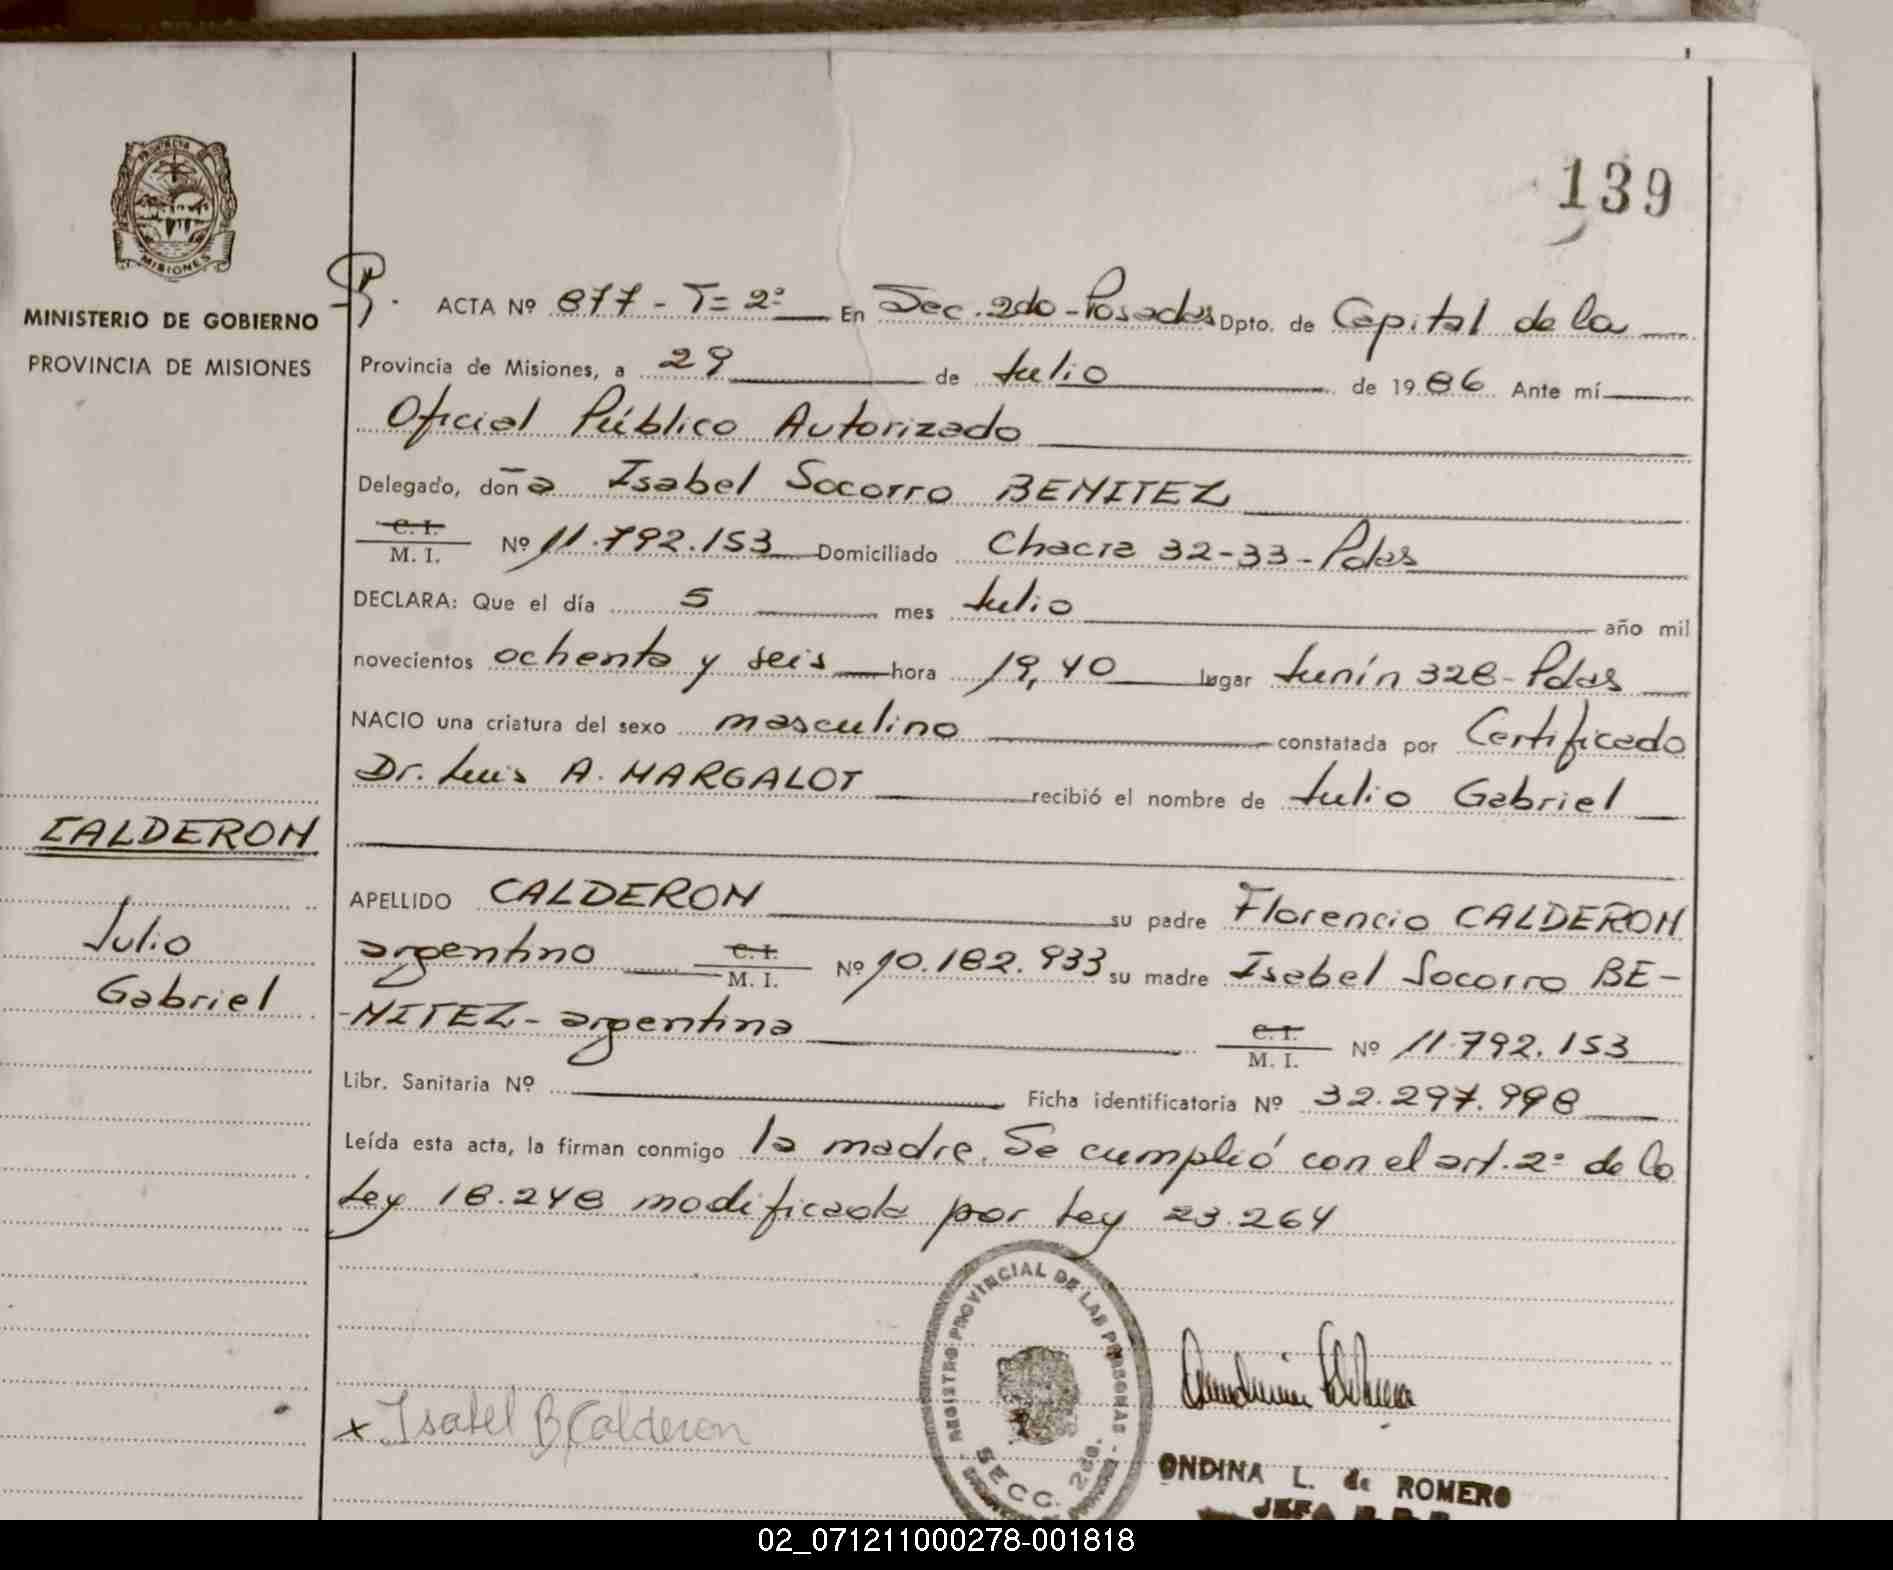 139
PROVINCIA DE
MISIONES
MINISTERIO DE GOBIERNO
PROVINCIA DE MISIONES
CALDERON
Julio
Gabriel
ACTA Nº 877 - T= 2º En Sec. 2do - Posadas Dpto. de Capital de la
Provincia de Misiones, a 29 de Julio de 1986 Ante mí
Oficial Público Autorizado
Delegado, doña Isabel Socorro BENITEZ
C. I.
M. I. Nº 11.792.153 Domiciliado Chacra 32-33 - Pdas
DECLARA: Que el día 5 mes Julio año mil
novecientos ochenta y seis hora 19,40 lugar Junín 328 - Pdas
NACIO una criatura del sexo masculino constatada por Certificado
Dr. Luis A. MARGALOT recibió el nombre de Julio Gabriel
APELLIDO CALDERON su padre Florencio CALDERON
argentino C. I. M. I. Nº 10.182.933 su madre Isabel Socorro BE-
-NITEZ - argentina C. I. M. I. Nº 11.792.153
Libr. Sanitaria Nº Ficha identificatoria Nº 32.297.998
Leída esta acta, la firman conmigo la madre. Se cumplió con el art. 2º de la
Ley 18.248 modificada por Ley 23.264
REGISTRO PROVINCIAL DE LAS PERSONAS
SECC. 2da.
x Isabel B Calderon
ONDINA L. de ROMERO
JEFA
02_071211000278-001818